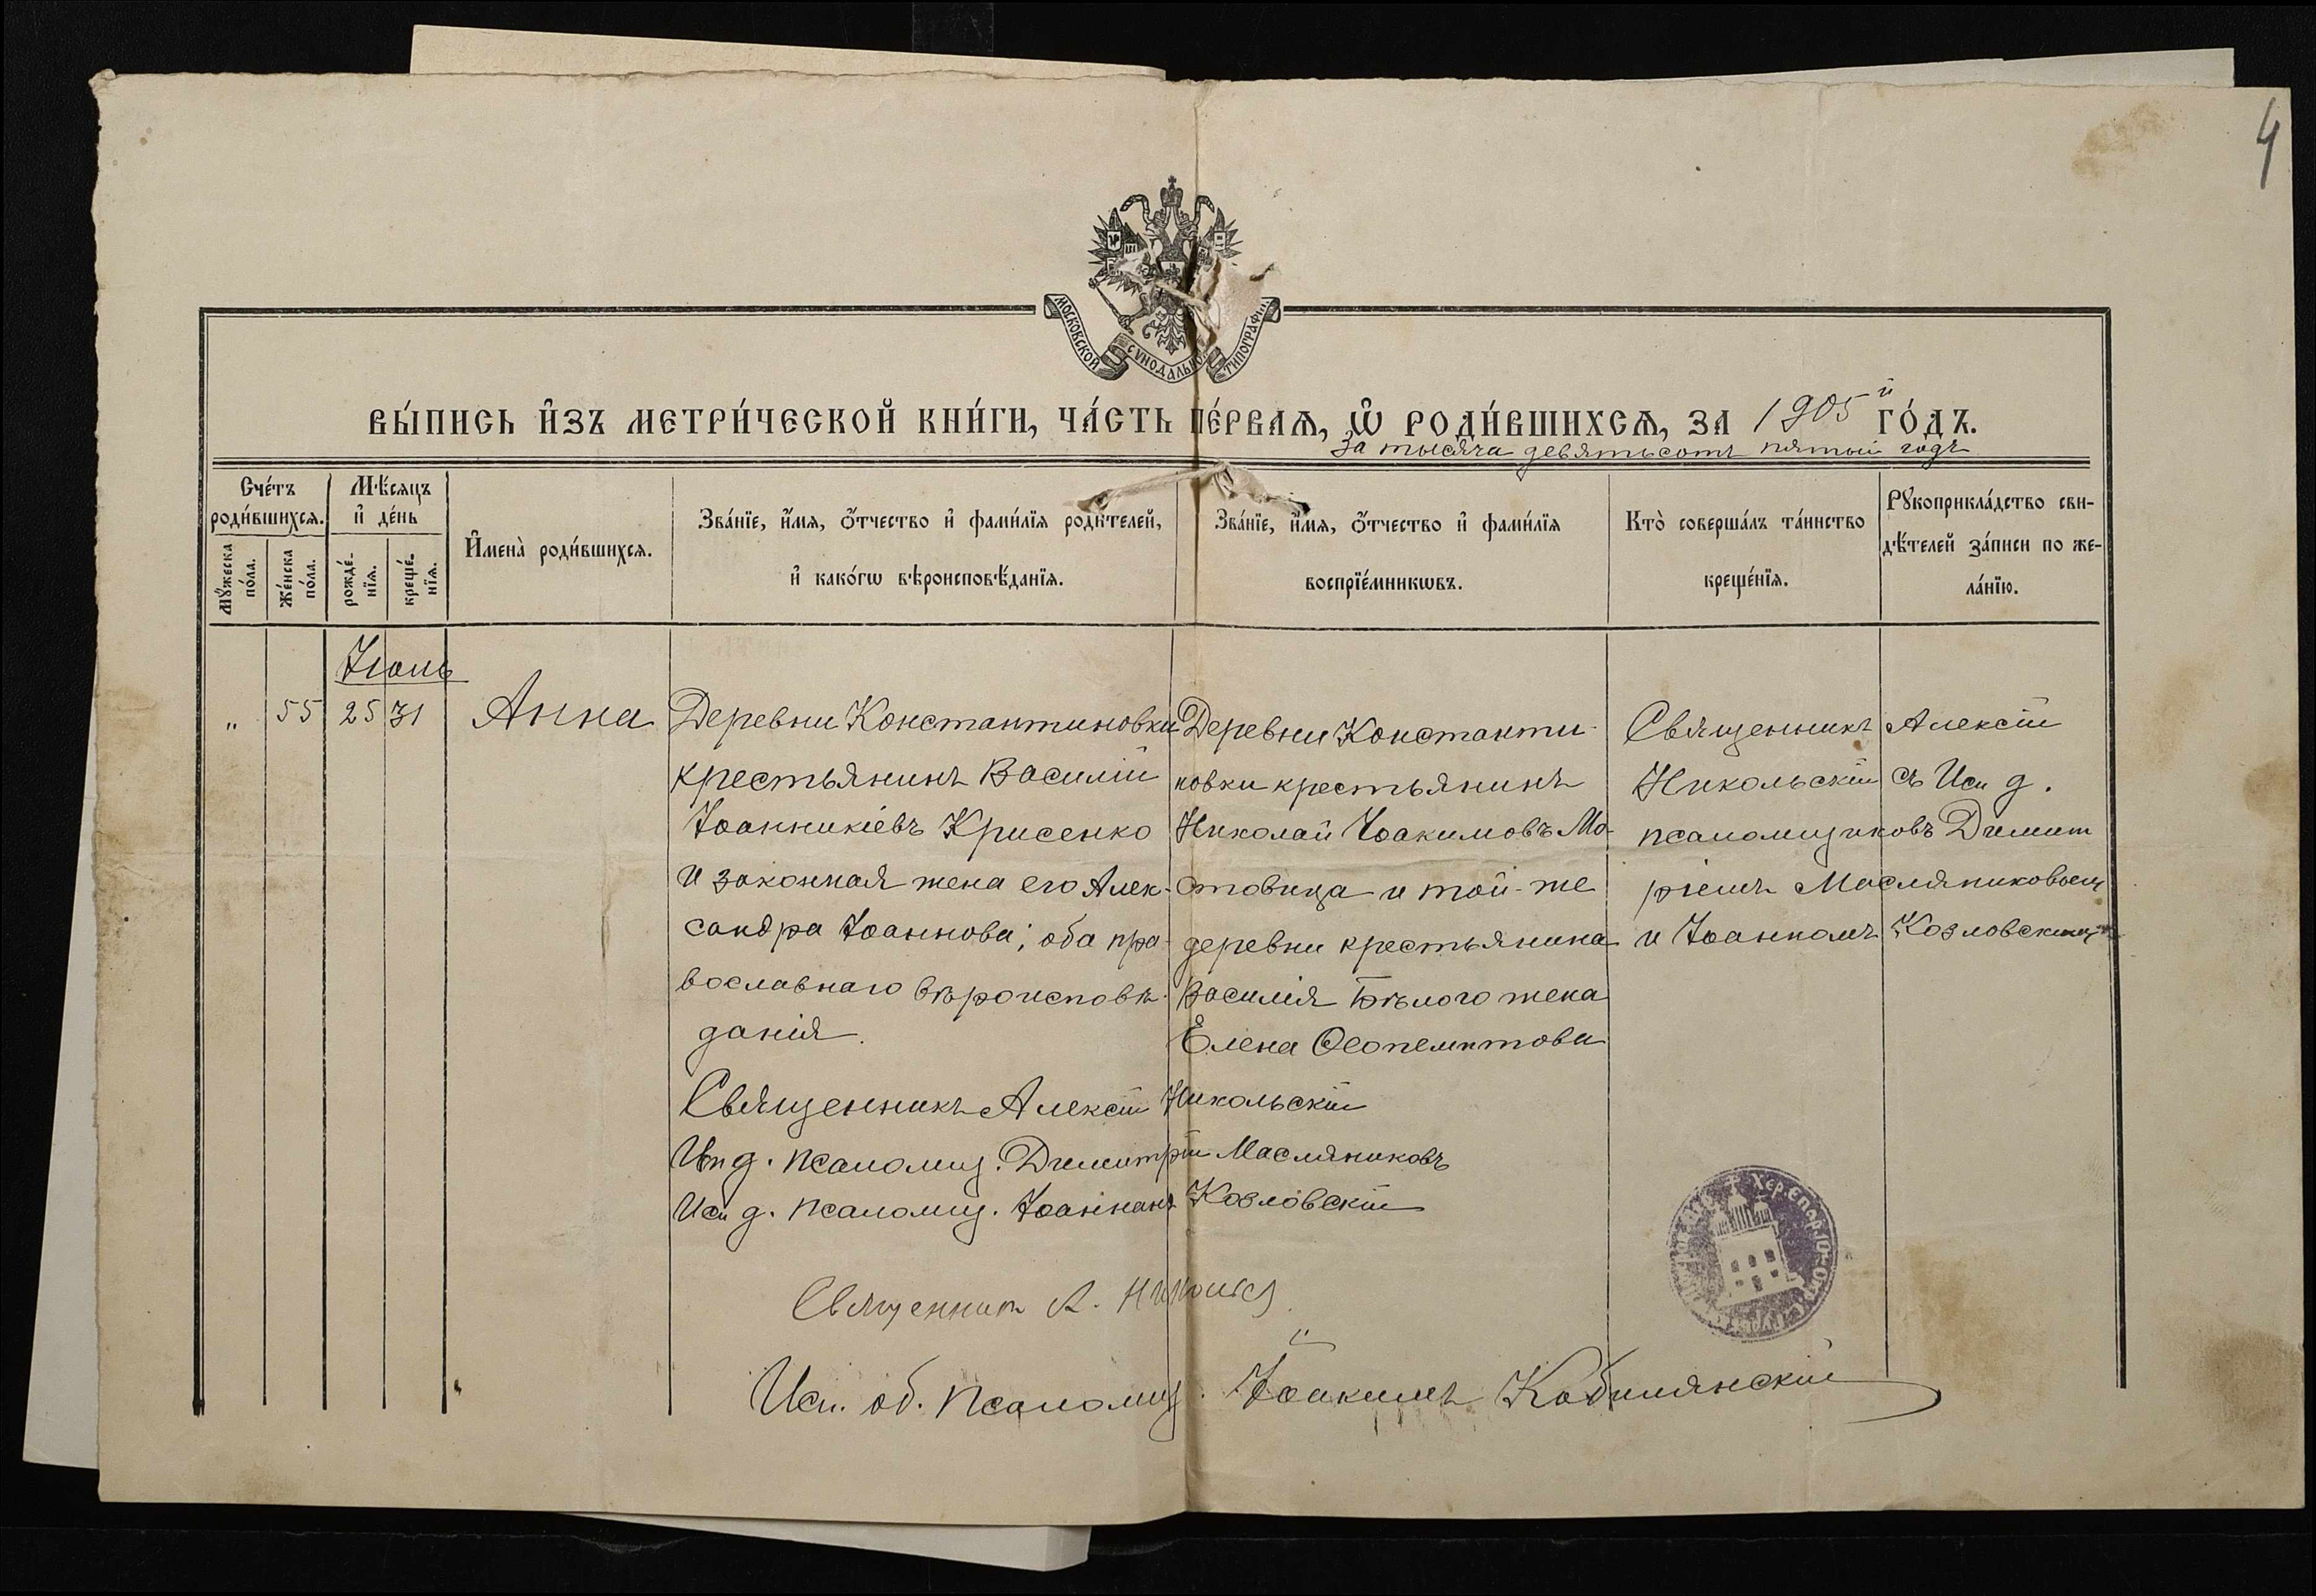 4
МОСКОВСКОЙ СѴНОДАЛЬНОЙ ТИПОГРАФІИ
ВЫ́ПИСЬ И҆ЗЪ МЕТРИ́ЧЕСКОЙ КНИ́ГИ, ЧА́СТЬ ПЕ́РВАѦ, Ѡ҆ РОДИ́ВШИХСѦ, ЗА 1905й ГО́ДЪ.
За тысяча девятьсотъ пятый годъ
Сче́тъ роди́вшихсѧ.
Мꙋ́жеска по́ла.
Же́нска по́ла.
Мѣ́сѧцъ и҆ де́нь
рожде́-нїѧ.
креще́-нїѧ.
И҆мена̀ роди́вшихсѧ.
Зва́нїе, и҆́мѧ, ѻ҆́тчество и҆ фами́лїѧ роди́телей,
и҆ како́гѡ вѣроисповѣ́данїѧ.
Зва́нїе, и҆́мѧ, ѻ҆́тчество и҆ фами́лїѧ
воспрїе́мникѡвъ.
Кто̀ соверша́лъ та́инство
креще́нїѧ.
Рꙋкоприкла́дство сви-
дѣ́телей за́писи по же-
ла́нїю.
Іюль
" 55 25 31
Анна
Деревни Константиновки
крестьянинъ Василій
Іоанникіевъ Крисенко
и законная жена его Алек-
сандра Іоаннова; оба пра-
вославнаго вѣроисповѣ-
данія.
Деревни Константи-
новки крестьянинъ
Николай Іоакимовъ Мо-
товица и той-же
деревни крестьянина
Василія Бѣлого жена
Елена Ѳеопемптова
Священникъ Алексій
Никольскій съ Исп. д.
псаломщиковъ Димит
ріемъ Масляниковымъ
и Іоанномъ Козловскимъ
Священникъ Алексій Никольскій
Исп д. псаломщ. Димитрій Масляниковъ
Исп д. псаломщ. Іоаннъ Козловскій
Священник А.
Исп. об. псаломщ. Іоакимъ
Хер. Епар.